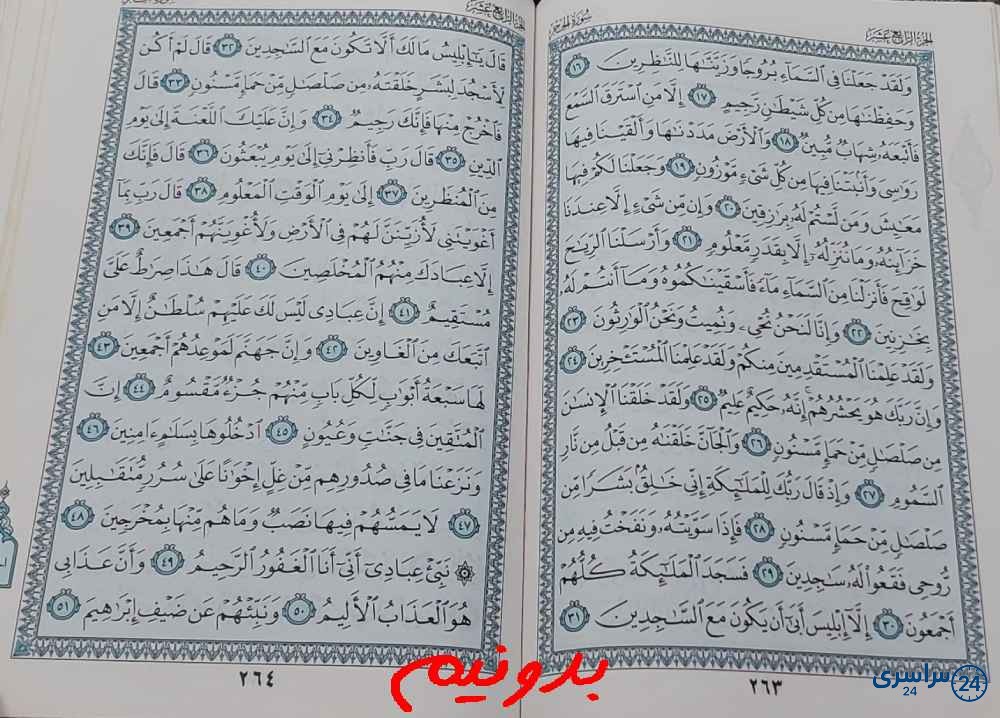 الجزء الرابع عشر
سورة الحجر
وَلَقَدْ جَعَلْنَا فِي ٱلسَّمَآءِ بُرُوجًا وَزَيَّنَّٰهَا لِلنَّٰظِرِينَ ١٦
وَحَفِظْنَٰهَا مِن كُلِّ شَيْطَٰنٍ رَّجِيمٍ ١٧ إِلَّا مَنِ ٱسْتَرَقَ ٱلسَّمْعَ
فَأَتْبَعَهُۥ شِهَابٌ مُّبِينٌ ١٨ وَٱلْأَرْضَ مَدَدْنَٰهَا وَأَلْقَيْنَا فِيهَا
رَوَٰسِيَ وَأَنۢبَتْنَا فِيهَا مِن كُلِّ شَيْءٍ مَّوْزُونٍ ١٩ وَجَعَلْنَا لَكُمْ فِيهَا
مَعَٰيِشَ وَمَن لَّسْتُمْ لَهُۥ بِرَٰزِقِينَ ٢٠ وَإِن مِّن شَيْءٍ إِلَّا عِندَنَا
خَزَآئِنُهُۥ وَمَا نُنَزِّلُهُۥٓ إِلَّا بِقَدَرٍ مَّعْلُومٍ ٢١ وَأَرْسَلْنَا ٱلرِّيَٰحَ
لَوَٰقِحَ فَأَنزَلْنَا مِنَ ٱلسَّمَآءِ مَآءً فَأَسْقَيْنَٰكُمُوهُ وَمَآ أَنتُمْ لَهُۥ
بِخَٰزِنِينَ ٢٢ وَإِنَّا لَنَحْنُ نُحْيِۦ وَنُمِيتُ وَنَحْنُ ٱلْوَٰرِثُونَ ٢٣
وَلَقَدْ عَلِمْنَا ٱلْمُسْتَقْدِمِينَ مِنكُمْ وَلَقَدْ عَلِمْنَا ٱلْمُسْتَـْٔخِرِينَ ٢٤
وَإِنَّ رَبَّكَ هُوَ يَحْشُرُهُمْ إِنَّهُۥ حَكِيمٌ عَلِيمٌ ٢٥ وَلَقَدْ خَلَقْنَا ٱلْإِنسَٰنَ
مِن صَلْصَٰلٍ مِّنْ حَمَإٍ مَّسْنُونٍ ٢٦ وَٱلْجَآنَّ خَلَقْنَٰهُ مِن قَبْلُ مِن نَّارِ
ٱلسَّمُومِ ٢٧ وَإِذْ قَالَ رَبُّكَ لِلْمَلَٰٓئِكَةِ إِنِّي خَٰلِقٌۢ بَشَرًا مِّن
صَلْصَٰلٍ مِّنْ حَمَإٍ مَّسْنُونٍ ٢٨ فَإِذَا سَوَّيْتُهُۥ وَنَفَخْتُ فِيهِ مِن
رُّوحِي فَقَعُوا۟ لَهُۥ سَٰجِدِينَ ٢٩ فَسَجَدَ ٱلْمَلَٰٓئِكَةُ كُلُّهُمْ
أَجْمَعُونَ ٣٠ إِلَّآ إِبْلِيسَ أَبَىٰٓ أَن يَكُونَ مَعَ ٱلسَّٰجِدِينَ ٣١
٢٦٣
الجزء الرابع عشر
قَالَ يَٰٓإِبْلِيسُ مَا لَكَ أَلَّا تَكُونَ مَعَ ٱلسَّٰجِدِينَ ٣٢ قَالَ لَمْ أَكُن
لِّأَسْجُدَ لِبَشَرٍ خَلَقْتَهُۥ مِن صَلْصَٰلٍ مِّنْ حَمَإٍ مَّسْنُونٍ ٣٣ قَالَ
فَٱخْرُجْ مِنْهَا فَإِنَّكَ رَجِيمٌ ٣٤ وَإِنَّ عَلَيْكَ ٱللَّعْنَةَ إِلَىٰ يَوْمِ
ٱلدِّينِ ٣٥ قَالَ رَبِّ فَأَنظِرْنِيٓ إِلَىٰ يَوْمِ يُبْعَثُونَ ٣٦ قَالَ فَإِنَّكَ
مِنَ ٱلْمُنظَرِينَ ٣٧ إِلَىٰ يَوْمِ ٱلْوَقْتِ ٱلْمَعْلُومِ ٣٨ قَالَ رَبِّ بِمَآ
أَغْوَيْتَنِي لَأُزَيِّنَنَّ لَهُمْ فِي ٱلْأَرْضِ وَلَأُغْوِيَنَّهُمْ أَجْمَعِينَ ٣٩
إِلَّا عِبَادَكَ مِنْهُمُ ٱلْمُخْلَصِينَ ٤٠ قَالَ هَٰذَا صِرَٰطٌ عَلَيَّ
مُسْتَقِيمٌ ٤١ إِنَّ عِبَادِي لَيْسَ لَكَ عَلَيْهِمْ سُلْطَٰنٌ إِلَّا مَنِ
ٱتَّبَعَكَ مِنَ ٱلْغَاوِينَ ٤٢ وَإِنَّ جَهَنَّمَ لَمَوْعِدُهُمْ أَجْمَعِينَ ٤٣
لَهَا سَبْعَةُ أَبْوَٰبٍ لِّكُلِّ بَابٍ مِّنْهُمْ جُزْءٌ مَّقْسُومٌ ٤٤ إِنَّ
ٱلْمُتَّقِينَ فِي جَنَّٰتٍ وَعُيُونٍ ٤٥ ٱدْخُلُوهَا بِسَلَٰمٍ ءَامِنِينَ ٤٦
وَنَزَعْنَا مَا فِي صُدُورِهِم مِّنْ غِلٍّ إِخْوَٰنًا عَلَىٰ سُرُرٍ مُّتَقَٰبِلِينَ
٤٧ لَا يَمَسُّهُمْ فِيهَا نَصَبٌ وَمَا هُم مِّنْهَا بِمُخْرَجِينَ ٤٨
۞ نَبِّئْ عِبَادِيٓ أَنِّيٓ أَنَا ٱلْغَفُورُ ٱلرَّحِيمُ ٤٩ وَأَنَّ عَذَابِي
هُوَ ٱلْعَذَابُ ٱلْأَلِيمُ ٥٠ وَنَبِّئْهُمْ عَن ضَيْفِ إِبْرَٰهِيمَ ٥١
٢٦٤
بدونیم
سراسری 24
24